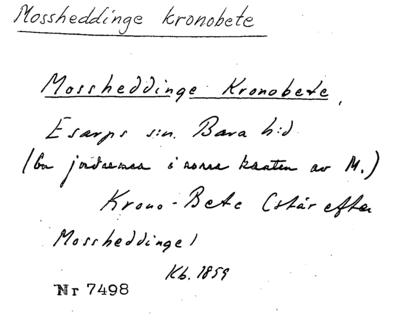 Mossheddinge kronobete
Mossheddinge Kronobete,
Esarps s:n. Bara h:d
(bn jordarna i norra kanten av M.)
Krono-Bete (står efter
Mossheddinge)
Kb. 1859
Nr 7498